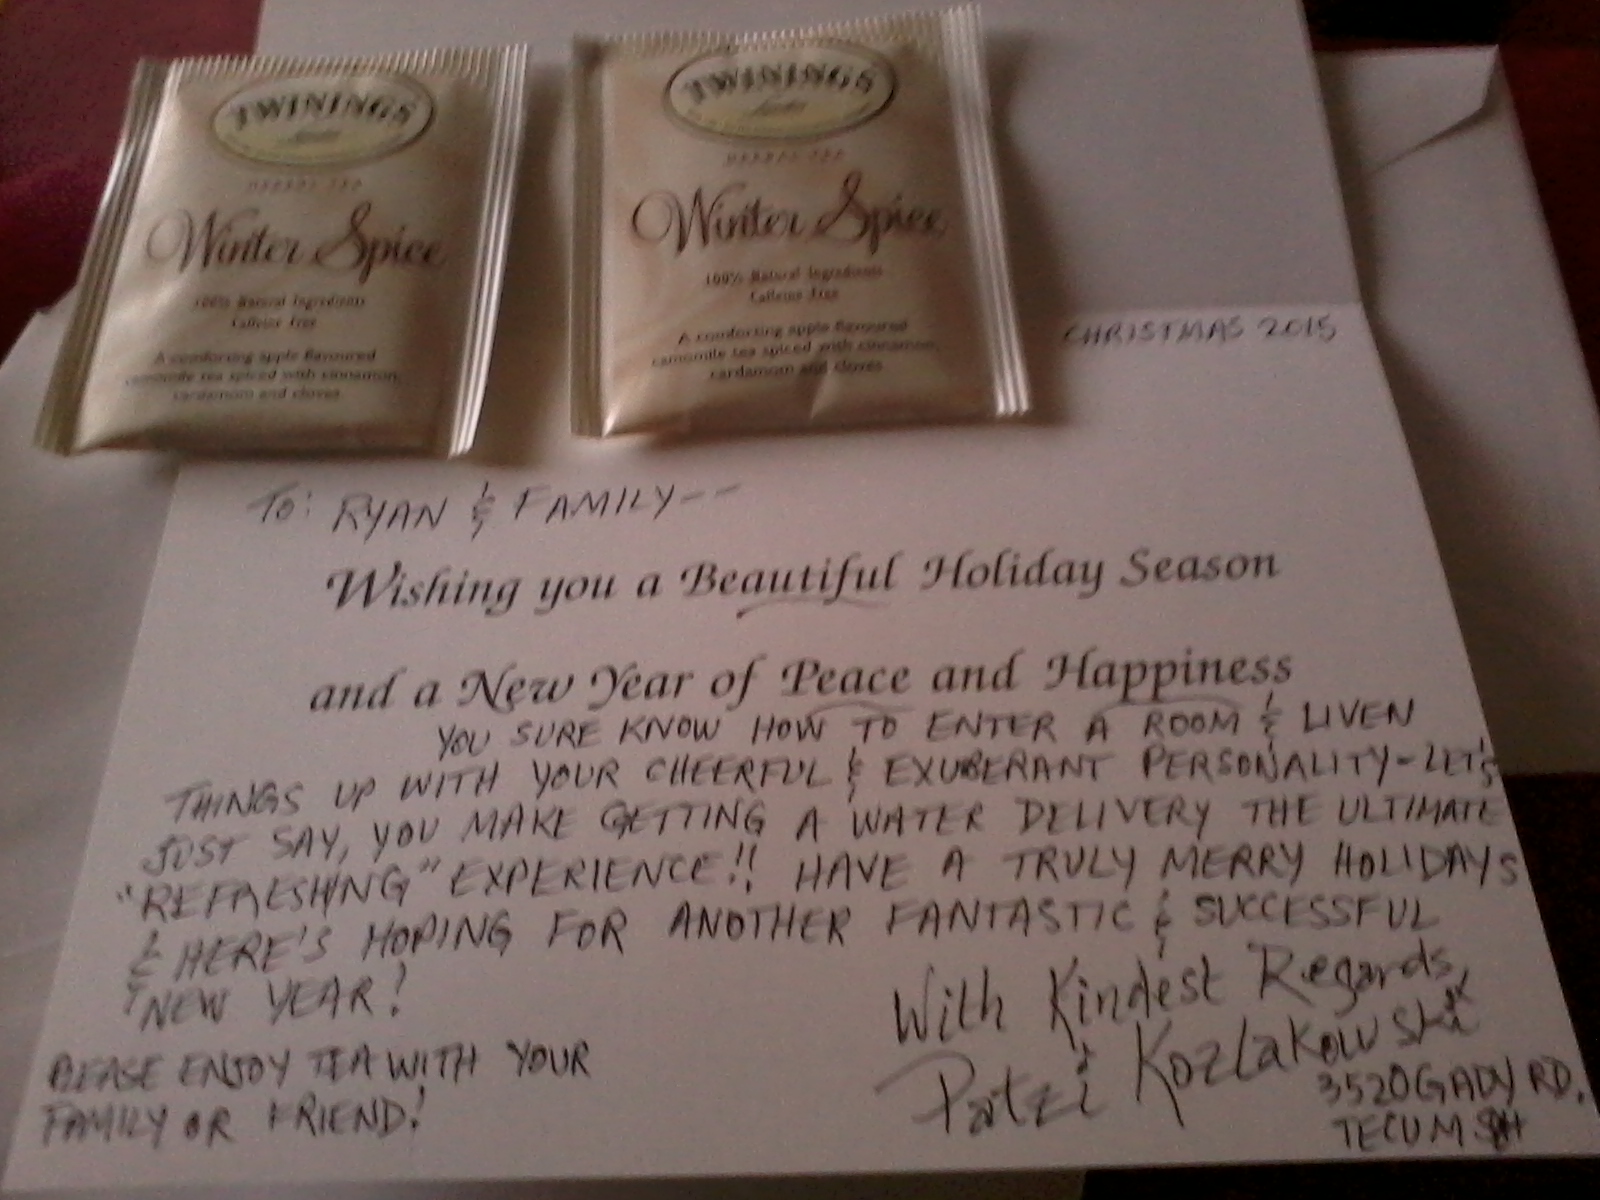 TWININGS
HERBAL TEA
Winter Spice
100% Natural Ingredients
Caffeine Free
A comforting apple flavoured
camomile tea spiced with cinnamon,
cardamom and cloves
TWININGS
HERBAL TEA
Winter Spice
100% Natural Ingredients
Caffeine Free
A comforting apple flavoured
camomile tea spiced with cinnamon,
cardamom and cloves
CHRISTMAS 2015
TO: RYAN & FAMILY--
Wishing you a Beautiful Holiday Season
and a New Year of Peace and Happiness
YOU SURE KNOW HOW TO ENTER A ROOM & LIVEN
THINGS UP WITH YOUR CHEERFUL & EXUBERANT PERSONALITY-LET'S
JUST SAY, YOU MAKE GETTING A WATER DELIVERY THE ULTIMATE
"REFRESHING" EXPERIENCE!! HAVE A TRULY MERRY HOLIDAYS
& HERE'S HOPING FOR ANOTHER FANTASTIC & SUCCESSFUL
NEW YEAR!
With Kindest Regards,
Patzi Kozlakowski
3520 GADY RD.
TECUMSEH
PLEASE ENJOY TEA WITH YOUR
FAMILY OR FRIEND!